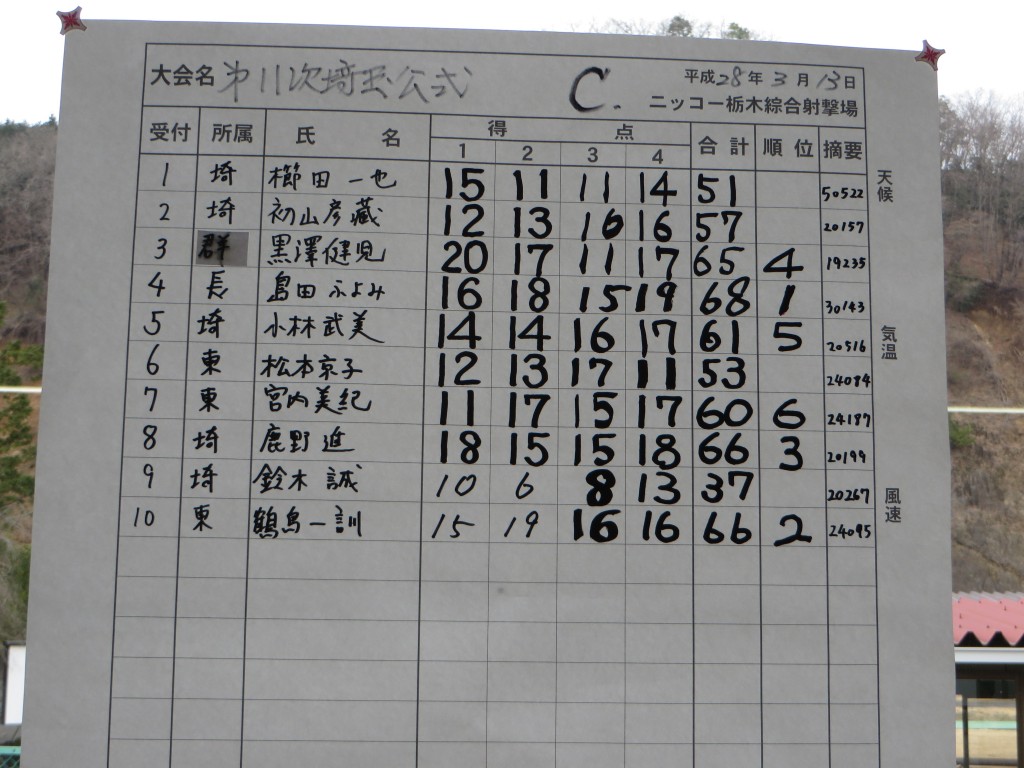 大会名 第11次埼玉公式 C. 平成28年3月13日
ニッコー栃木綜合射撃場
受付 所属 氏名 得点 合計 順位 摘要
1 2 3 4
1 埼 櫛田一也 15 11 11 14 51 50522
2 埼 初山彦藏 12 13 16 16 57 20157
3 群 黒澤健児 20 17 11 17 65 4 19235
4 長 島田ふよみ 16 18 15 19 68 1 30143
5 埼 小林武美 14 14 16 17 61 5 20516
6 東 松本京子 12 13 17 11 53 24084
7 東 宮内美紀 11 17 15 17 60 6 24187
8 埼 鹿野進 18 15 15 18 66 3 20199
9 埼 鈴木誠 10 6 8 13 37 20267
10 東 鶴鳥一訓 15 19 16 16 66 2 24095
天候
気温
風速